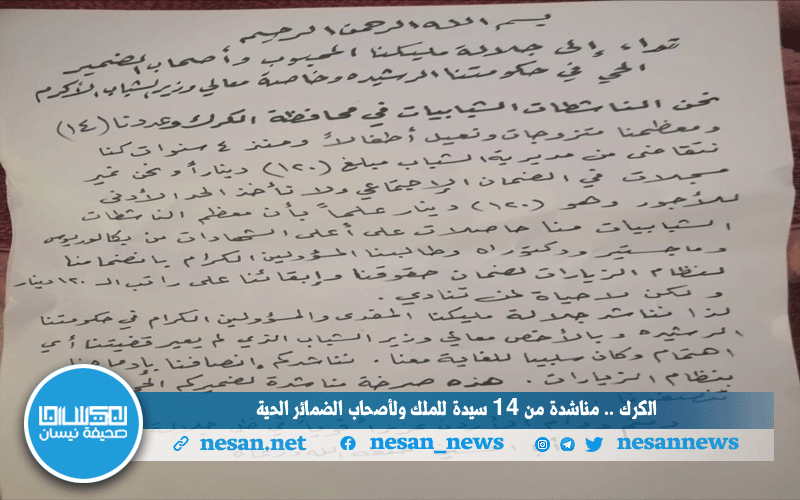 بسم الله الرحمن الرحيم
نداء إلى جلالة مليكنا المحبوب وأصحاب الضمير
الحي في حكومتنا الرشيده وخاصة معالي وزير الشباب الأكرم
نحن الناشطات الشبابيات في محافظة الكرك وعددنا (١٤)
ومعظمنا متزوجات ونعيل أطفالاً ومنذ ٤ سنوات كنا
نتقاضى من مديرية الشباب مبلغ (١٢٠) ديناراً ونحن غير
مسجلات في الضمان الإجتماعي ولا نأخذ الحد الأدنى
للأجور وهو (١٢٠) دينار علماً بأن معظم الناشطات
الشبابيات منا حاصلات على أعلى الشهادات من بكالوريوس
وماجستير ودكتوراه وطالبنا المسؤولين الكرام بانضمامنا
لنظام الزيارات لضمان حقوقنا وإبقائنا على راتب الـ ١٢٠ دينار
ولكن لا حياة لمن تنادي .
لذا نناشد جلالة مليكنا المفدى والمسؤولين الكرام في حكومتنا
الرشيده وبالأخص معالي وزير الشباب الذي لم يعير قضيتنا أي
اهتمام وكان سلبيا للغاية معنا . نناشدكم إنصافنا بإدماجنا
بنظام الزيارات . هذه صرخة مناشدة لضميركم الحي
الكرك .. مناشدة من 14 سيدة للملك ولأصحاب الضمائر الحية
صحيفة نيسان
nesan.net nesan_news nesannews